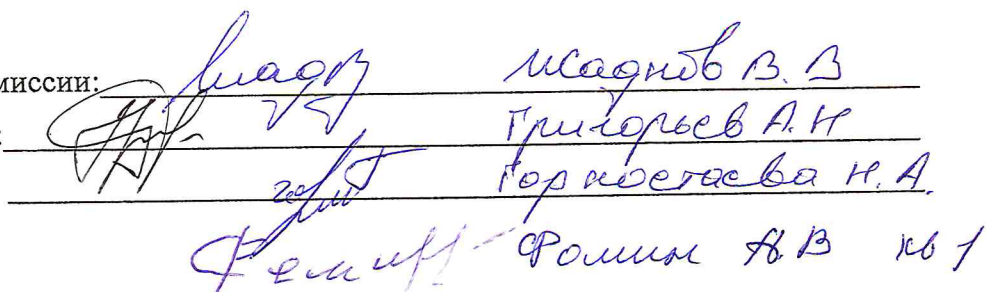 миссии: Жаднов В. В
Григорьев А. Н
Горностаева Н. А.
Фомин Фомин А. В кв 1